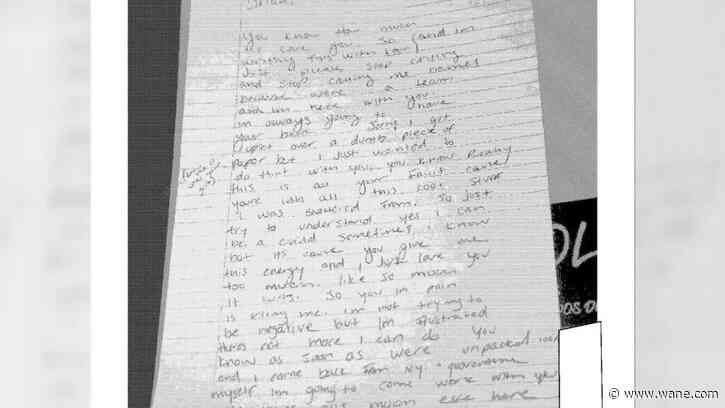 You know how much
I care you. So (and im
writing this with love)
Just please stop crying
and stop calling me names
because were a team
and im here with you.
im always going to have
your back. Sorry I get
upset over a dumb piece of
paper but I just wanted to
do that with you, you know Really
this is all your fault cause
youre with all this cool stuff
I was from. So Just
try to understand yes I can
be a child sometimes, I know
but its cause you give me
this energy and I just love you
too much. like so much
it hurts. So you in pain
is killing me. im not trying to
be negative but Im frustrated
theres not more I can do. You
know as soon as were unpacked
and I come back from NY + quarantine
myself im going to come work with you
much else here
OL
OS D
www.wane.com